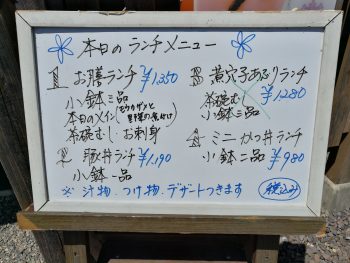 本日のランチメニュー
1 お膳ランチ ¥1,350
小鉢三品
本日のメイン(モウカザメと野菜の煮付け)
茶碗むし、お刺身
2 豚丼ランチ ¥1,190
小鉢一品
3 煮穴子あぶりランチ ¥1280
茶碗むし
小鉢三品
4 ミニかつ丼ランチ ¥980
小鉢二品
※ 汁物、つけ物、デザートつきます
税込み